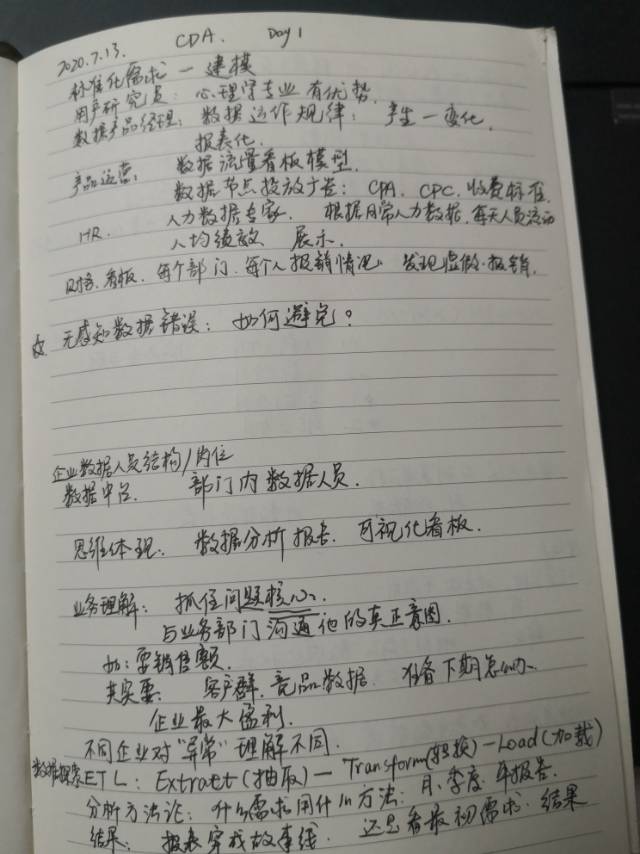 2020.7.13. CDA. Day 1
标准化需求 — 建模
用户研究员: 心理学专业有优势.
数据产品经理: 数据运作规律: 产生—变化.
报表化.
产品运营: 数据流量看板模型.
数据节点投放广告: CPA. CPC. 收费标准.
HR. 人力数据专家. 根据月常人力数据. 每天人员流动
人均绩效 展示.
财务. 看板. 每个部门. 每个人报销情况. 发现虚假报销.
☆ 无感知数据错误: 如何避免?
企业数据人员结构/岗位
数据中台. 部门内数据人员.
思维体现: 数据分析报告. 可视化看板.
业务理解: 抓住问题核心.
与业务部门沟通他的真正意图.
如: 要销售额.
其实要: 客户群. 竞品数据. 准备下期怎么办.
企业最大盈利.
不同企业对"异常"理解不同.
数据探索 ETL: Extract(抽取) — Transform(转换) — Load(加载)
分析方法论: 什么需求用什么方法: 月. 季度. 年报告.
结果: 报表穿成故事线. 还是看最初需求. 结果